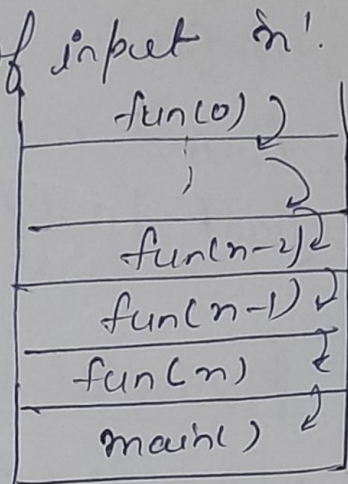 f input 'n'.
fun(0)
fun(n-2)
fun(n-1)
fun(n)
main()